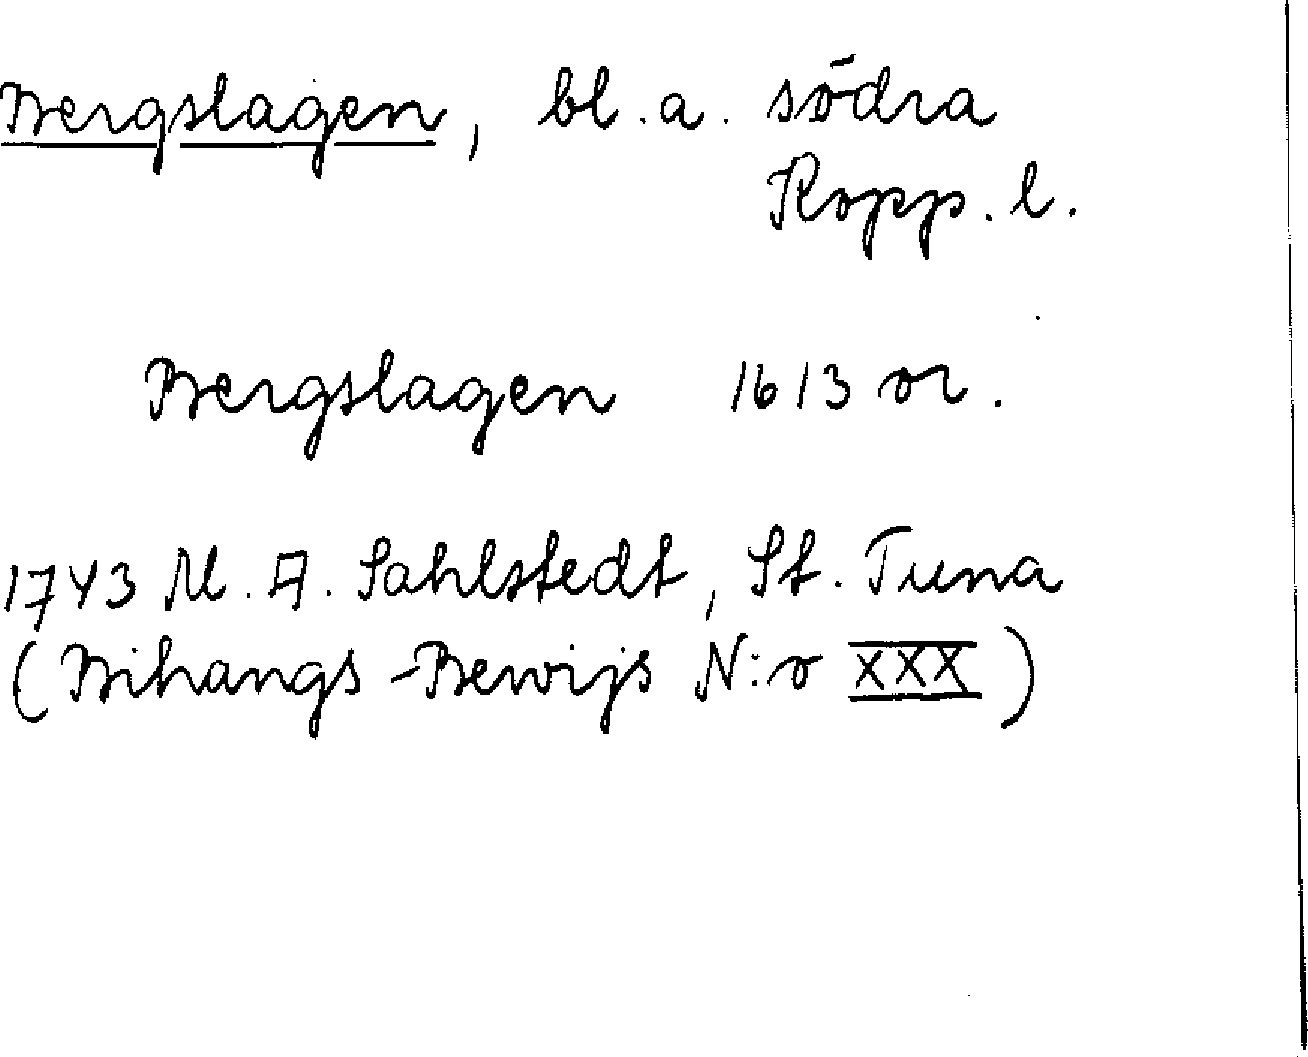 Bergslagen, bl.a. södra
Kopp. l.
Bergslagen 1613 or.
1743 M. A. Sahlstedt, St. Tuna
(Bihangs-Bewijs N:o XXX)